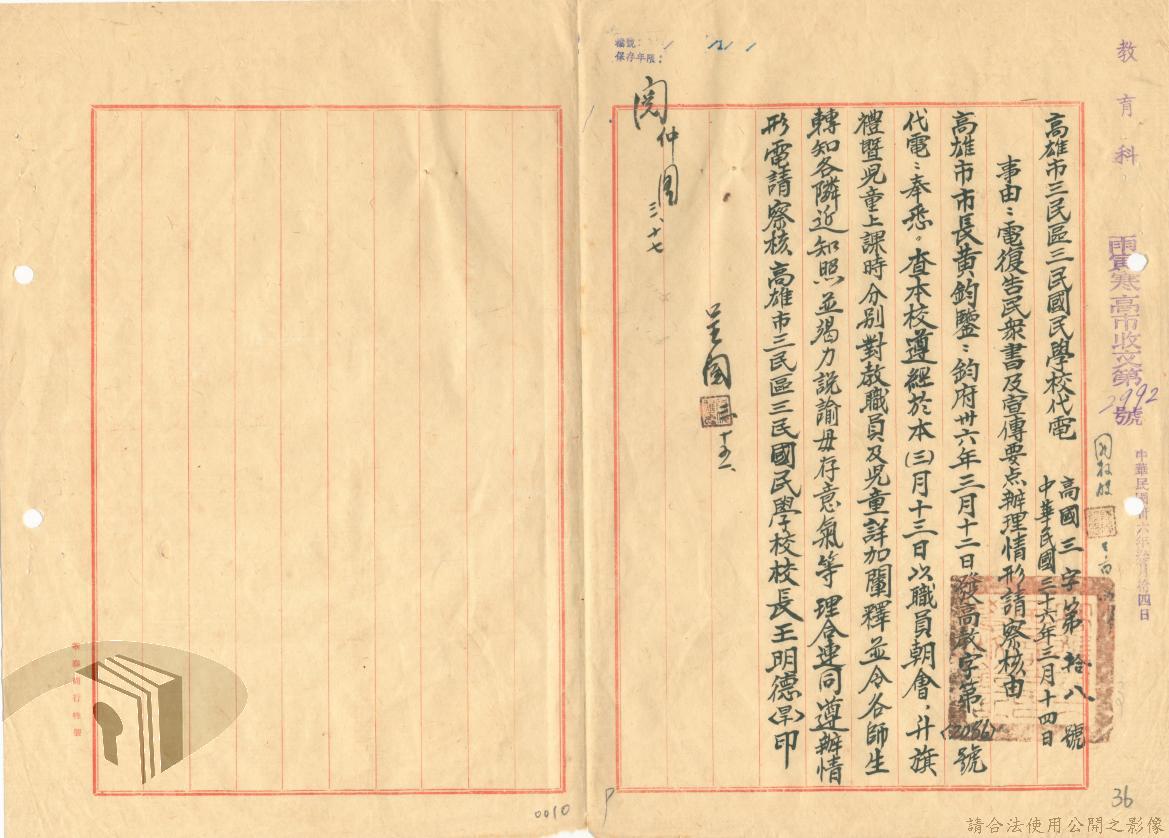 教育科
高市收文第2992號
中華民國卅六年 月拾四日
檔號：
保存年限：
高雄市三民區三民國民學校代電
高國三字第拾八號
中華民國三十六年三月十四日
事由：電復告民衆書及宣傳要点辦理情形請察核由
高雄市市長黄鈞鑒：鈞府卅六年三月十二日發高教字第(2036)號
代電：奉悉。查本校遵經於本(三)月十三日以職員朝會，升旗
禮暨児童上課時分別對教職員及児童詳加闡釋並令各師生
轉知各隣近知照並竭力説諭毋存意氣等理合連同遵辦情
形電請察核高雄市三民區三民國民學校校長王明德(早)印
閱
三、十七
0010
36
請合法使用公開之影像